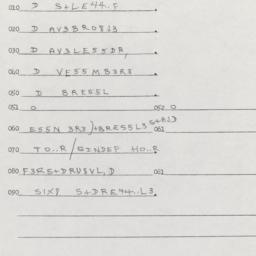 010 D S+LE44..F
020 D AV3BR0833
030 D AV3LE55DR,
040 D VE55MB3R3
050 D BRE55L
051 0 052 0
060 E55N 3R3)+BRE55L3
061
070 TO..R/GINDEF HO..R
080 F3RE+DRU8VL,D 081
090 SIX8 S+DRE44..L3